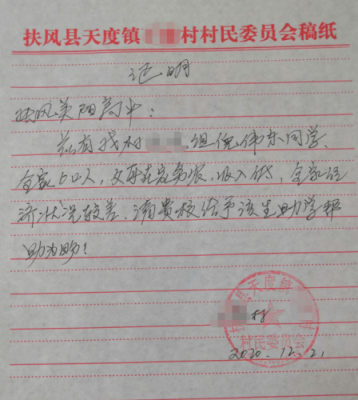 扶风县天度镇 村村民委员会稿纸
证明
扶风美阳高中:
兹有我村 组 伟东同学,
全家五口人,父母在家务农,收入低,全家经
济状况较差,请贵校给予该生助学帮
助为盼!
村
扶风县天度镇
村民委员会
2020.12.2,